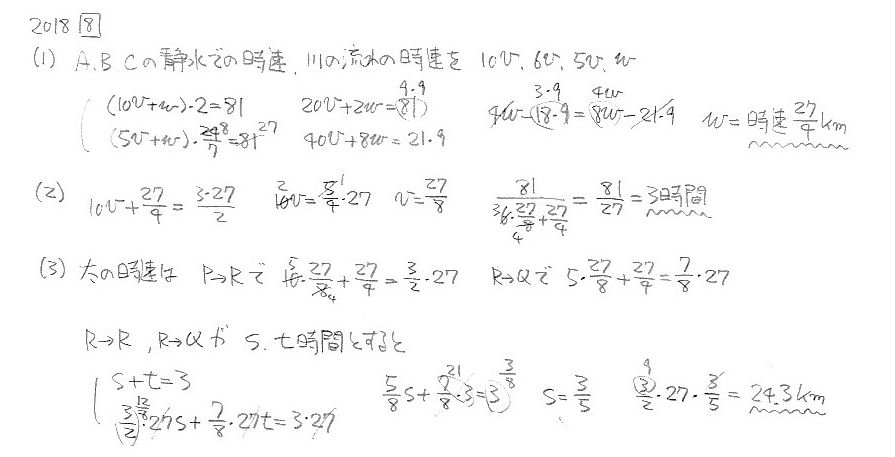 2018 8
(1) A,B Cの静水での時速、川の流れの時速を 10v, 6v, 5v, w
(10v+w)・2=81 20v+2w=81 9・9 4w-18・9=8w-21・9 3・9 4w w=時速 27/4 km
(5v+w)・24/7=81 8 27 40v+8w=21・9
(2) 10v+27/4=3・27/2 10v=5/4・27 2 1 v=27/8 81/(6・27/8+27/4)=81/27=3時間 3 4
(3) 太の時速は P→Rで 10・27/8+27/4=3/2・27 5 4 R→Qで 5・27/8+27/4=7/8・27
R→R, R→Qが s, t時間とすると
s+t=3 5/8s+7/8・3=3 21 3/8 s=3/5 3/2・27・3/5=24.3km 9
3/2・27s+7/8・27t=3・27 12/8